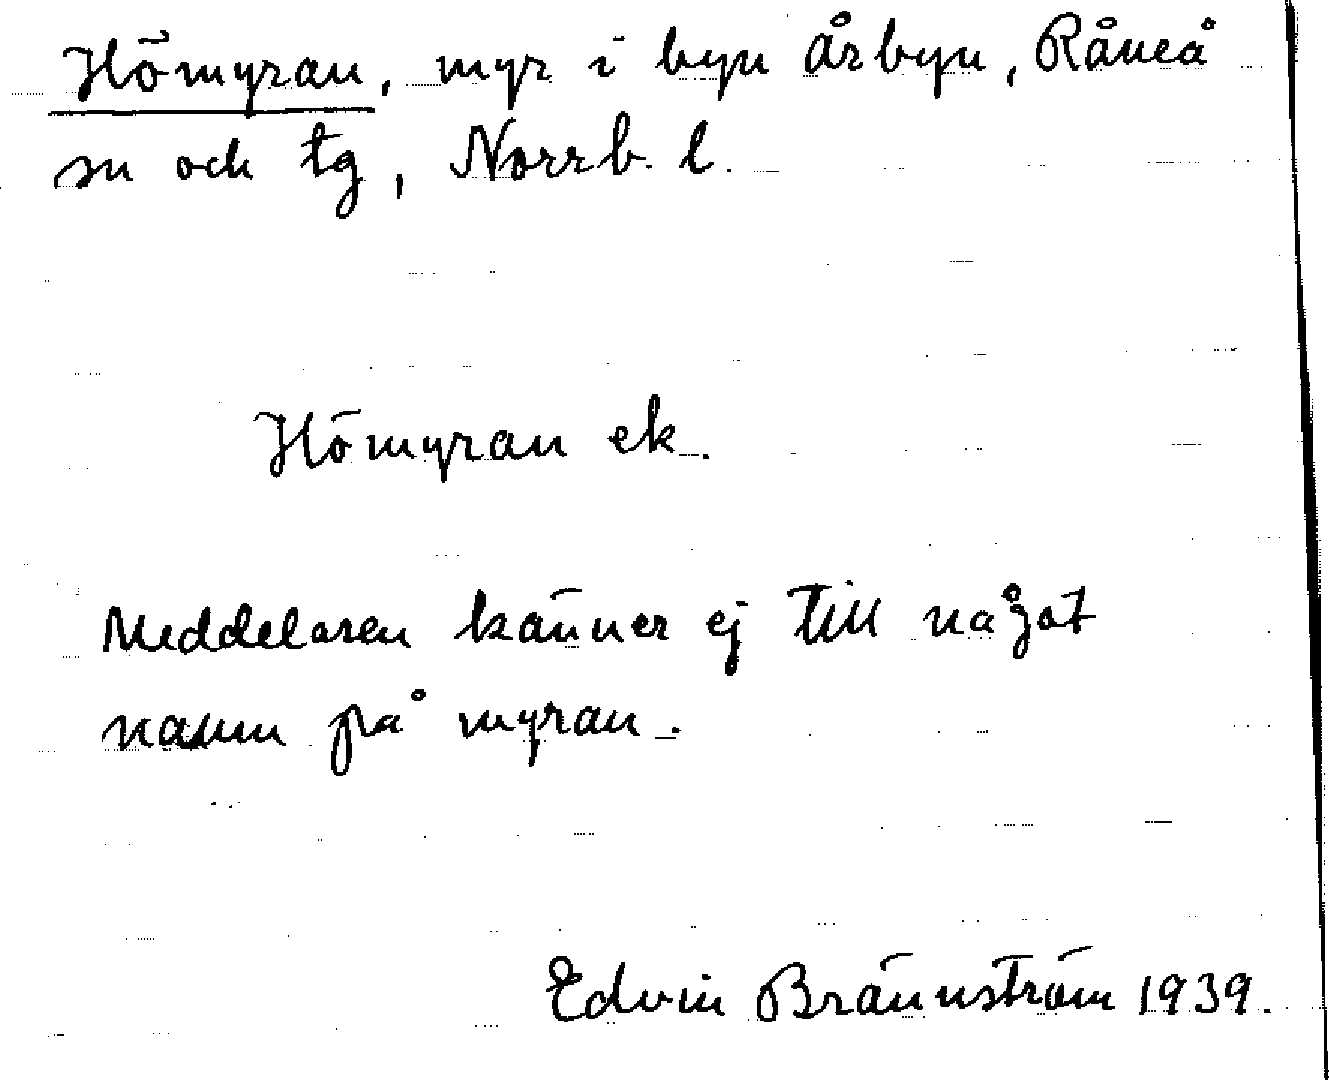 Hömyran, myr i byn Årbyn, Råneå
sn och tg, Norrb. l.
Hömyran ek.
Meddelaren känner ej till något
namn på myran.
Edvin Brännström 1939.